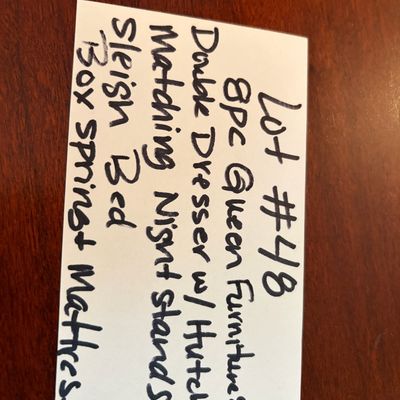 Lot #48
8pc Queen Furniture:
Double Dresser w/ Hutch
Matching Night stands
Sleigh Bed
Box spring + Mattress